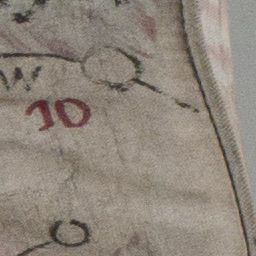 W
10